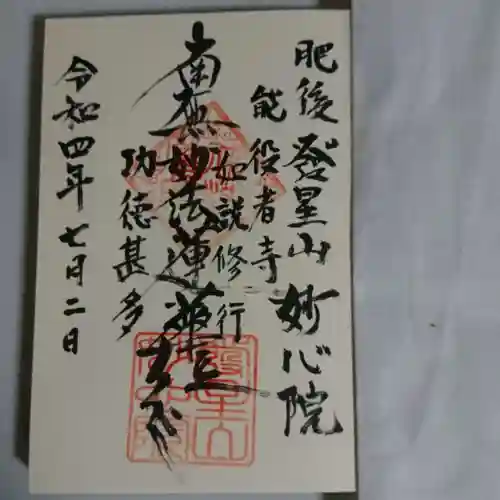 肥後 発星山 妙心院
能役者寺
如説修行
南無妙法蓮華経
功徳甚多
令和四年七月二日